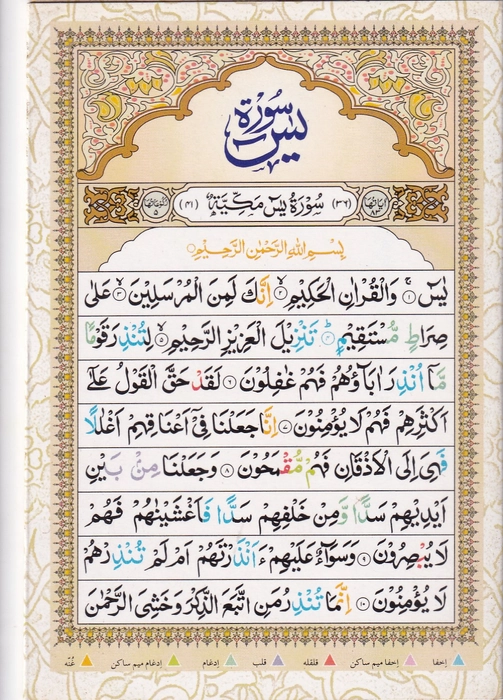 سورة يس
اياتها ٨٣ (٣٦) سُوْرَةُ يٰسٓ مَكِّيَّةٌ (٤١) رکوعاتها ٥
بِسْمِ اللهِ الرَّحْمٰنِ الرَّحِيْمِ
يٰسٓ ۝١ وَالْقُرْاٰنِ الْحَكِيْمِ ۝٢ اِنَّكَ لَمِنَ الْمُرْسَلِيْنَ ۝٣ عَلٰى
صِرَاطٍ مُّسْتَقِيْمٍ ۝٤ تَنْزِيْلَ الْعَزِيْزِ الرَّحِيْمِ ۝٥ لِتُنْذِرَ قَوْمًا
مَّاۤ اُنْذِرَ اٰبَآؤُهُمْ فَهُمْ غٰفِلُوْنَ ۝٦ لَقَدْ حَقَّ الْقَوْلُ عَلٰۤى
اَكْثَرِهِمْ فَهُمْ لَا يُؤْمِنُوْنَ ۝٧ اِنَّا جَعَلْنَا فِيْۤ اَعْنَاقِهِمْ اَغْلٰلًا
فَهِيَ اِلَى الْاَذْقَانِ فَهُمْ مُّقْمَحُوْنَ ۝٨ وَجَعَلْنَا مِنْۢ بَيْنِ
اَيْدِيْهِمْ سَدًّا وَّمِنْ خَلْفِهِمْ سَدًّا فَاَغْشَيْنٰهُمْ فَهُمْ
لَا يُبْصِرُوْنَ ۝٩ وَسَوَآءٌ عَلَيْهِمْ ءَاَنْذَرْتَهُمْ اَمْ لَمْ تُنْذِرْهُمْ
لَا يُؤْمِنُوْنَ ۝١٠ اِنَّمَا تُنْذِرُ مَنِ اتَّبَعَ الذِّكْرَ وَخَشِيَ الرَّحْمٰنَ
اخفا اخفا میم ساکن قلقله قلب ادغام ادغام میم ساکن غنّه